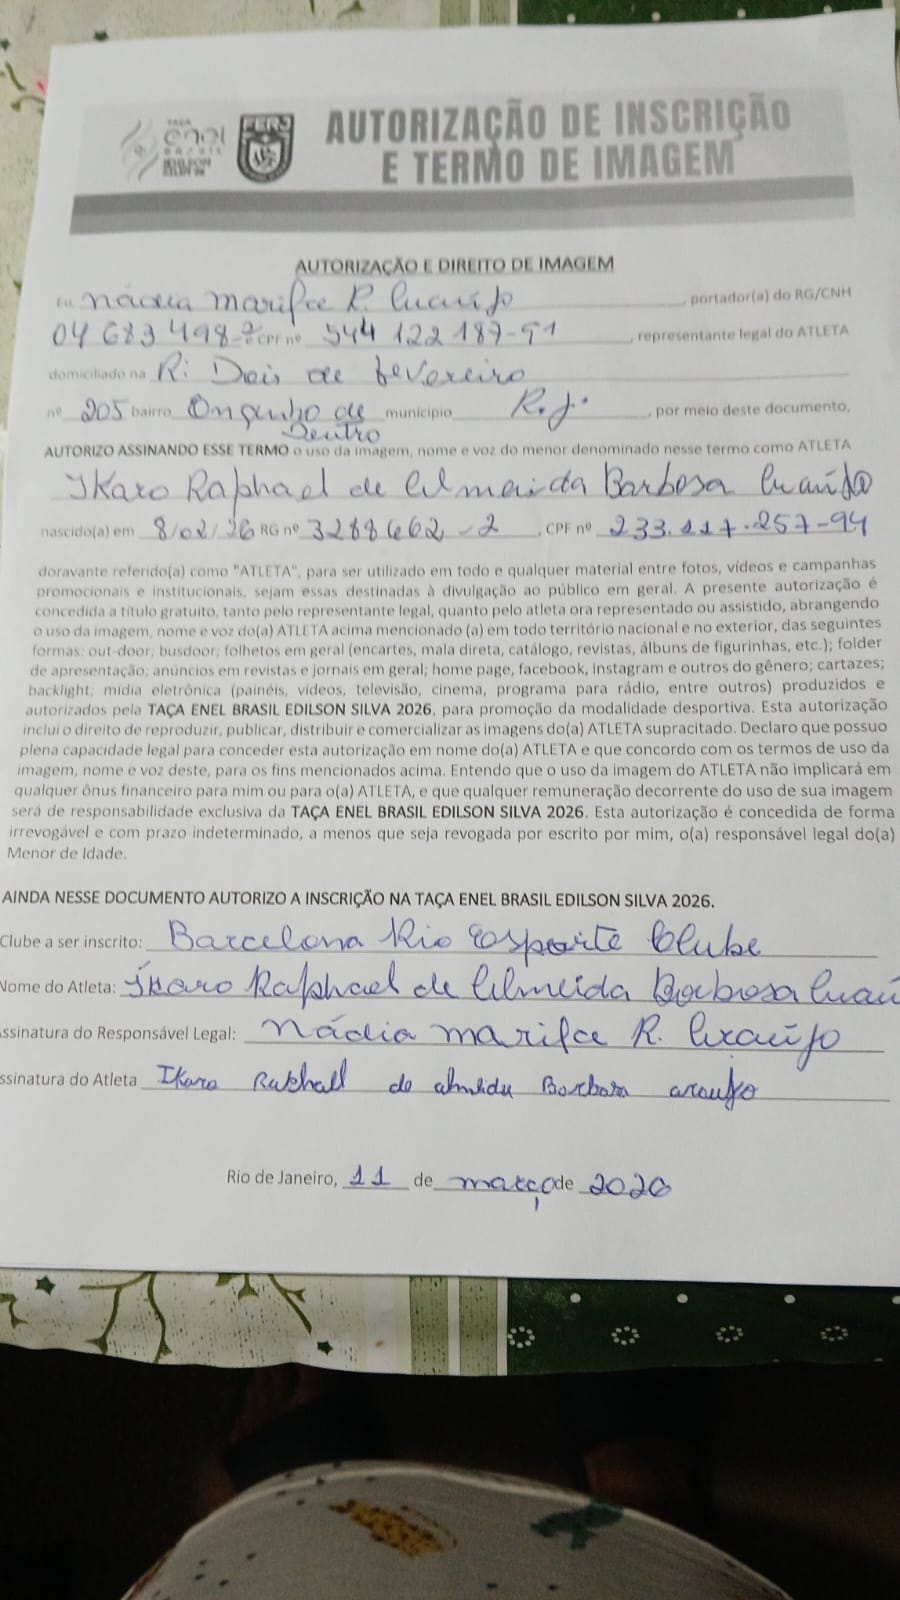 TAÇA
enel
BRASIL
EDILSON
SILVA
FERJ
AUTORIZAÇÃO DE INSCRIÇÃO
E TERMO DE IMAGEM
AUTORIZAÇÃO E DIREITO DE IMAGEM
Eu, Nádia Marifce R. Araújo, portador(a) do RG/CNH
04 683 498-2 CPF nº 544 122 187-91, representante legal do ATLETA
domiciliado na R: Dois de fevereiro
nº 205 bairro Engenho de município R.J. , por meio deste documento,
Dentro
AUTORIZO ASSINANDO ESSE TERMO o uso da imagem, nome e voz do menor denominado nesse termo como ATLETA
Ikaro Raphael de Almeida Barbosa Araújo
nascido(a) em 8/02/26 RG nº 3288662-2, CPF nº 233.117.257-94
doravante referido(a) como "ATLETA", para ser utilizado em todo e qualquer material entre fotos, vídeos e campanhas
promocionais e institucionais, sejam essas destinadas à divulgação ao público em geral. A presente autorização é
concedida a título gratuito, tanto pelo representante legal, quanto pelo atleta ora representado ou assistido, abrangendo
o uso da imagem, nome e voz do(a) ATLETA acima mencionado (a) em todo território nacional e no exterior, das seguintes
formas: out-door; busdoor; folhetos em geral (encartes, mala direta, catálogo, revistas, álbuns de figurinhas, etc.); folder
de apresentação; anúncios em revistas e jornais em geral; home page, facebook, instagram e outros do gênero; cartazes;
backlight; mídia eletrônica (painéis, vídeos, televisão, cinema, programa para rádio, entre outros) produzidos e
autorizados pela TAÇA ENEL BRASIL EDILSON SILVA 2026, para promoção da modalidade desportiva. Esta autorização
inclui o direito de reproduzir, publicar, distribuir e comercializar as imagens do(a) ATLETA supracitado. Declaro que possuo
plena capacidade legal para conceder esta autorização em nome do(a) ATLETA e que concordo com os termos de uso da
imagem, nome e voz deste, para os fins mencionados acima. Entendo que o uso da imagem do ATLETA não implicará em
qualquer ônus financeiro para mim ou para o(a) ATLETA, e que qualquer remuneração decorrente do uso de sua imagem
será de responsabilidade exclusiva da TAÇA ENEL BRASIL EDILSON SILVA 2026. Esta autorização é concedida de forma
irrevogável e com prazo indeterminado, a menos que seja revogada por escrito por mim, o(a) responsável legal do(a)
Menor de Idade.
AINDA NESSE DOCUMENTO AUTORIZO A INSCRIÇÃO NA TAÇA ENEL BRASIL EDILSON SILVA 2026.
Clube a ser inscrito: Barcelona Rio Esporte Clube
Nome do Atleta: Íkaro Raphael de Almeida Barbosa Araú
ssinatura do Responsável Legal: Nádia Marifce R. Araújo
ssinatura do Atleta Ikaro Raphael de almeida Barbosa araujo
Rio de Janeiro, 11 de março de 2026